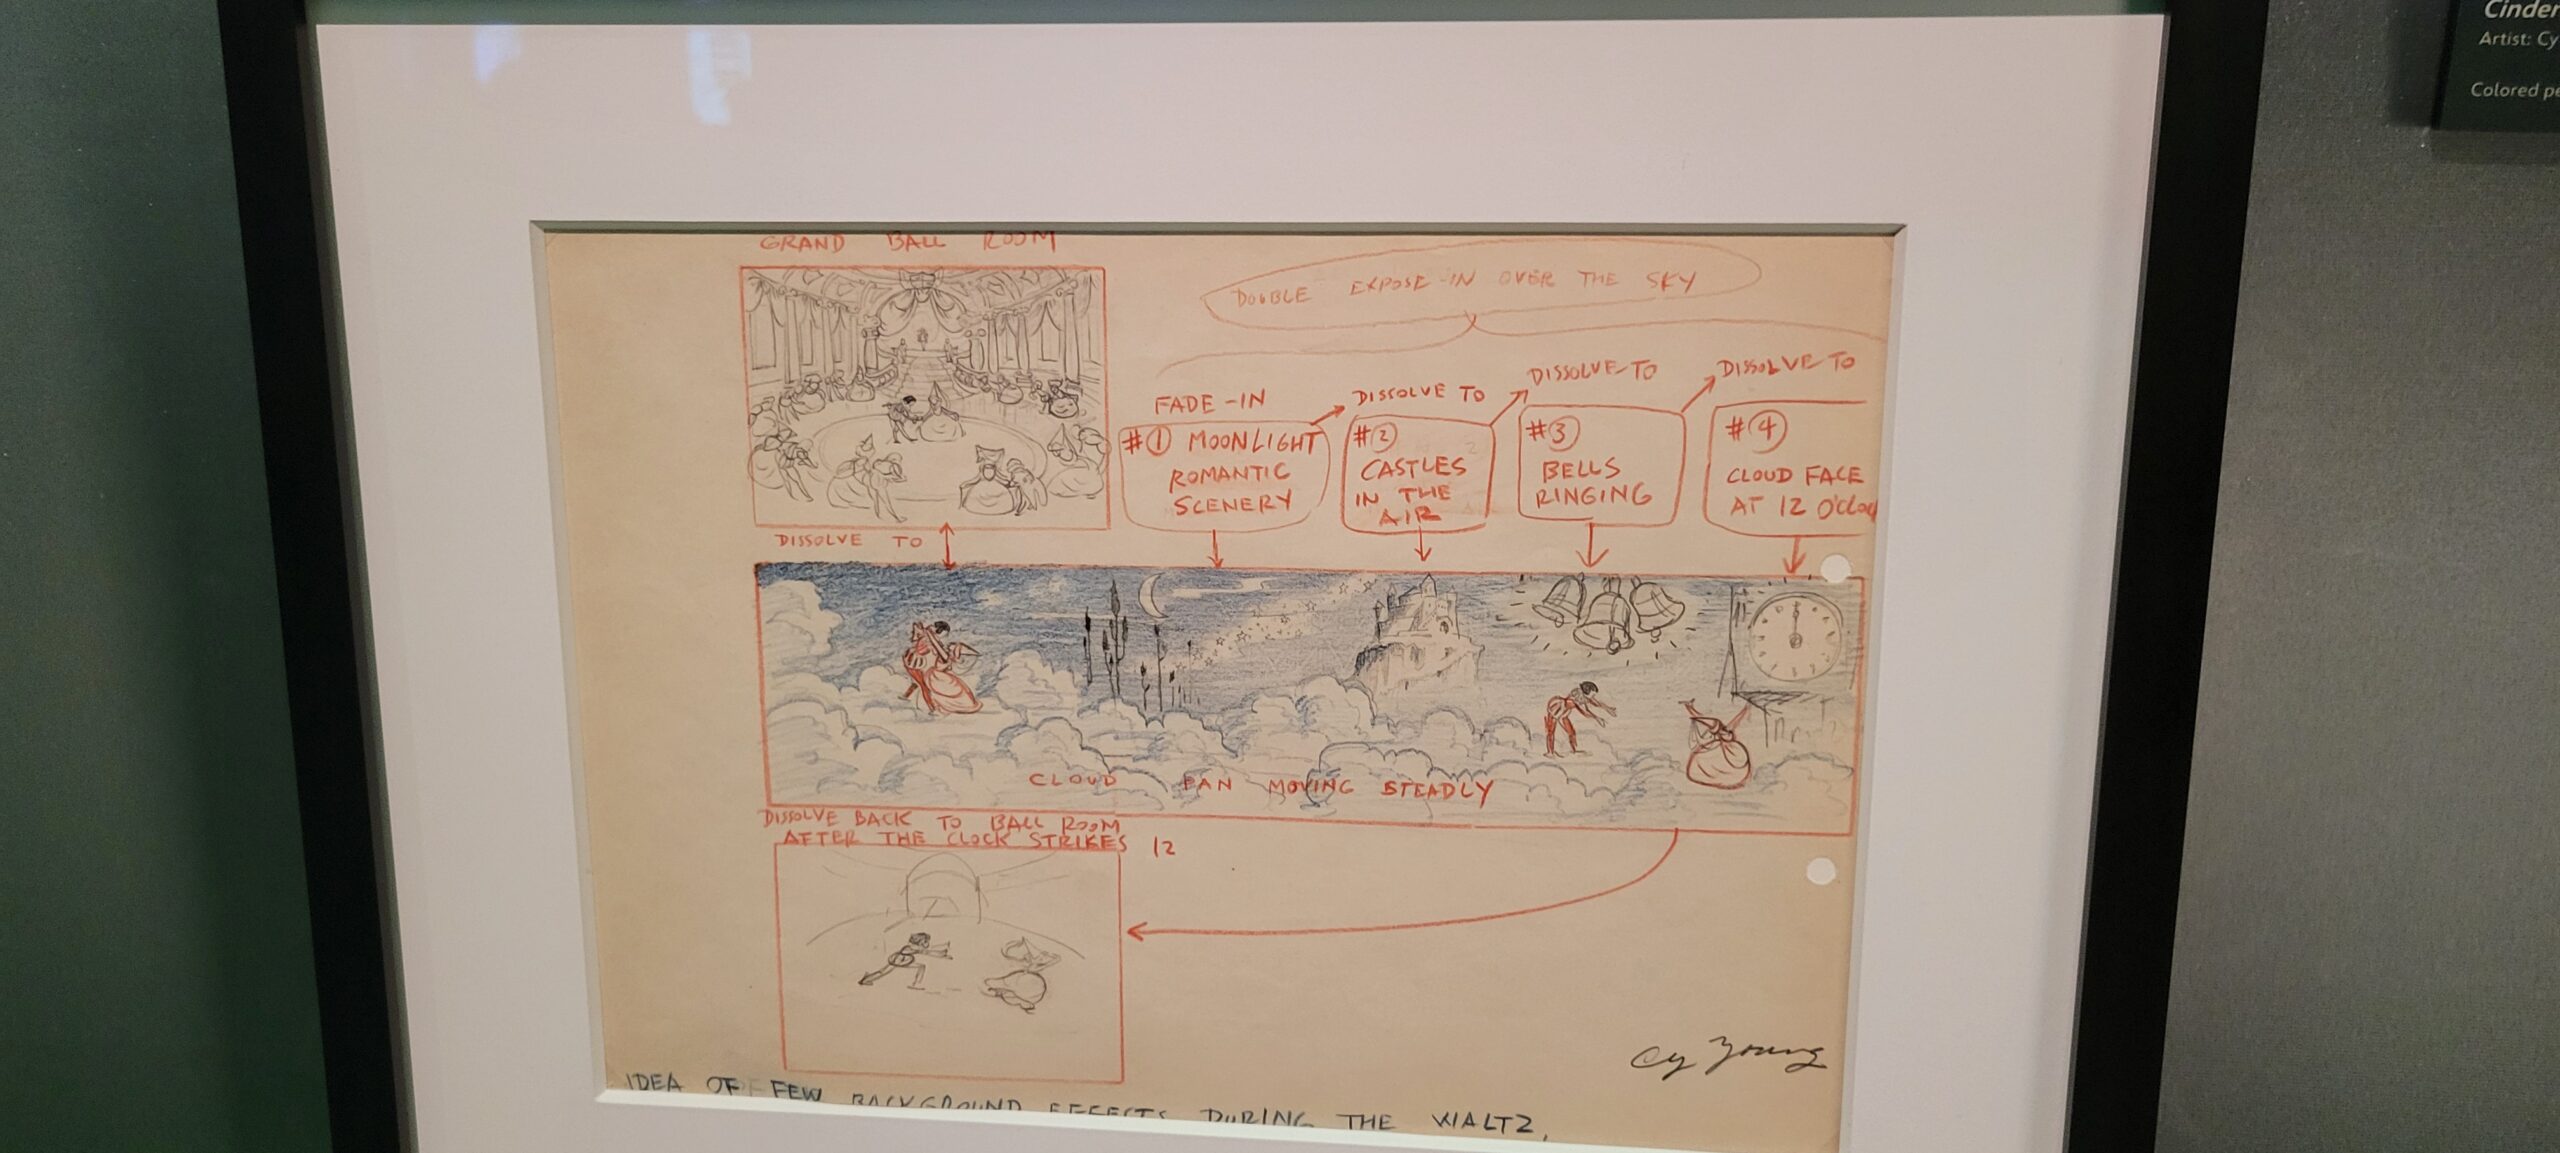 Cinder
Artist: Cy
Colored pe
GRAND BALL ROOM
DOUBLE EXPOSE-IN OVER THE SKY
FADE-IN
DISSOLVE TO
DISSOLVE TO
DISSOLVE TO
#1 MOONLIGHT
ROMANTIC
SCENERY
#2
CASTLES
IN THE
AIR
#3
BELLS
RINGING
#4
CLOUD FACE
AT 12 O'cloc
DISSOLVE TO
CLOUD PAN MOVING STEADLY
DISSOLVE BACK TO BALL ROOM
AFTER THE CLOCK STRIKES 12
Cy Young
IDEA OF FEW BACKGROUND EFFECTS DURING THE WALTZ,